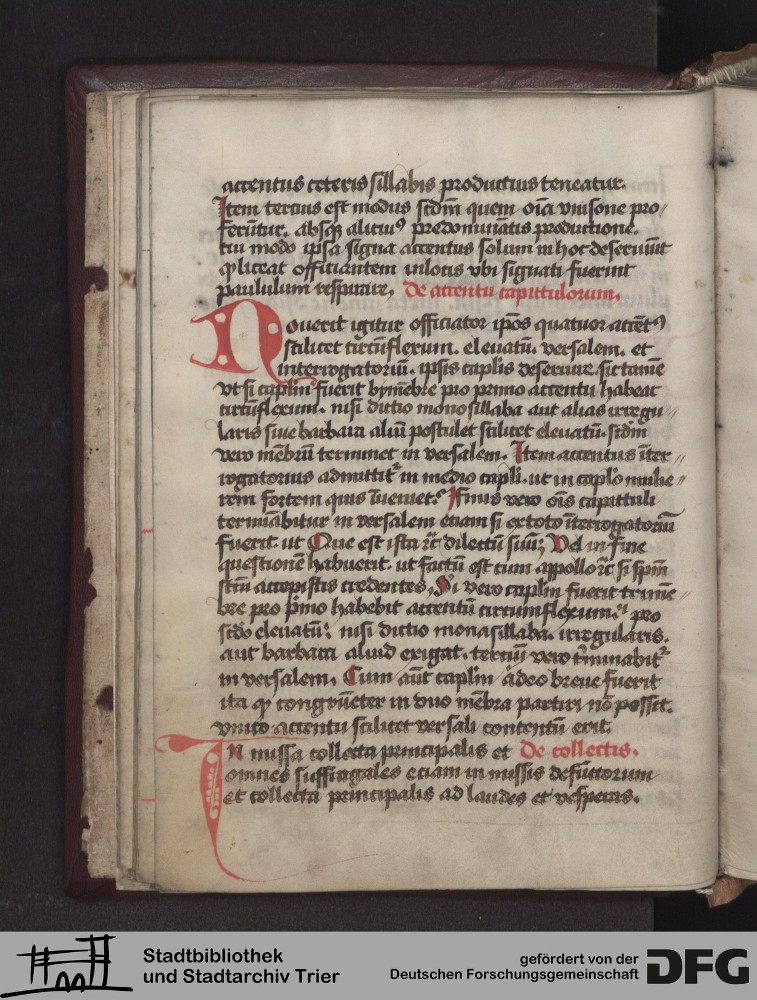 accentus ceteris sillabis productius teneatur.
Item tercius est modus scdm quem oīa vnisone pro⸗
ferūtur. absqȝ alicuiꝰ predominātis productione.
cui modo ipsa signa accentus solum in hoc deseruiūt
qꝫ liceat officiantem in locis vbi signati fuerint
paululum respirare. De accentu capittulorum.
Nouerit igitur officiator ipōs quatuor accētꝰ
scilicet circūflexum. eleuatū. versalem. et
interrogatoriū. ipsis caplis deseruire. sic tamē
vt si caplm fuerit bymēbre pro primo accentu habeat
circūflexum. nisi dictio monosillaba aut alias irregu⸗
laris siue barbara aliū postulet scilicet eleuatū. scdm
vero mēbrū terminet in versalem. Item accentus īter⸗
rogatorius admittitʳ in medio capli. ut in caplo mulie⸗
rem fortem quis īueniet. Finis vero oīs capittuli
termīabitur in versalem eciam si ex toto īterrogatoriū
fuerit. ut Que est ista ꝛc dilectū suū; Vel in fine
questionē habuerit. ut factū est cum appollo ꝛc si spm
scm accepistis credentes. Si vero caplm fuerit trimē⸗
bre pro pmo habebit accentū circumflexum. pro
scdo eleuatū. nisi dictio monasillaba. irregularis.
aut barbara aliud exigat. terciū vero tmīnabitʳ
in versalem. Cum aūt caplm adeo breue fuerit
ita qꝫ congruēter in duo mēbra partiri nō possit.
vnico accentu scilicet versali contentū erit.
In missa collecta principalis et De collectis.
omnes suffragales eciam in missis defūctorum
et collecta principalis ad laudes et vesperas.
Stadtbibliothek
und Stadtarchiv Trier
gefördert von der
Deutschen Forschungsgemeinschaft
DFG